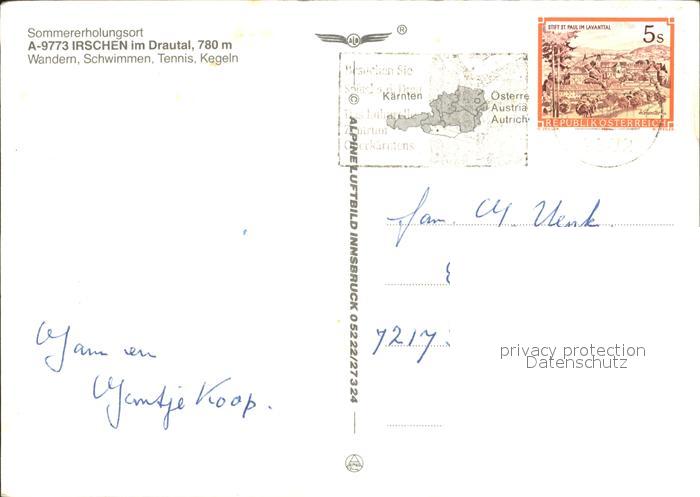 Sommererholungsort
A-9773 IRSCHEN im Drautal, 780 m
Wandern, Schwimmen, Tennis, Kegeln
ALB ®
STIFT ST. PAUL IM LAVANTTAL
5s
REPUBLIK ÖSTERREICH
Besuchen Sie
Kärnten
Österre
Austria
Autrich
Oberkärntens
© ALPINE LUFTBILD INNSBRUCK 0 52 22/27 3 24
Fam. M. Venk.
7217
Jan en
Jantje Koop.
privacy protection
Datenschutz